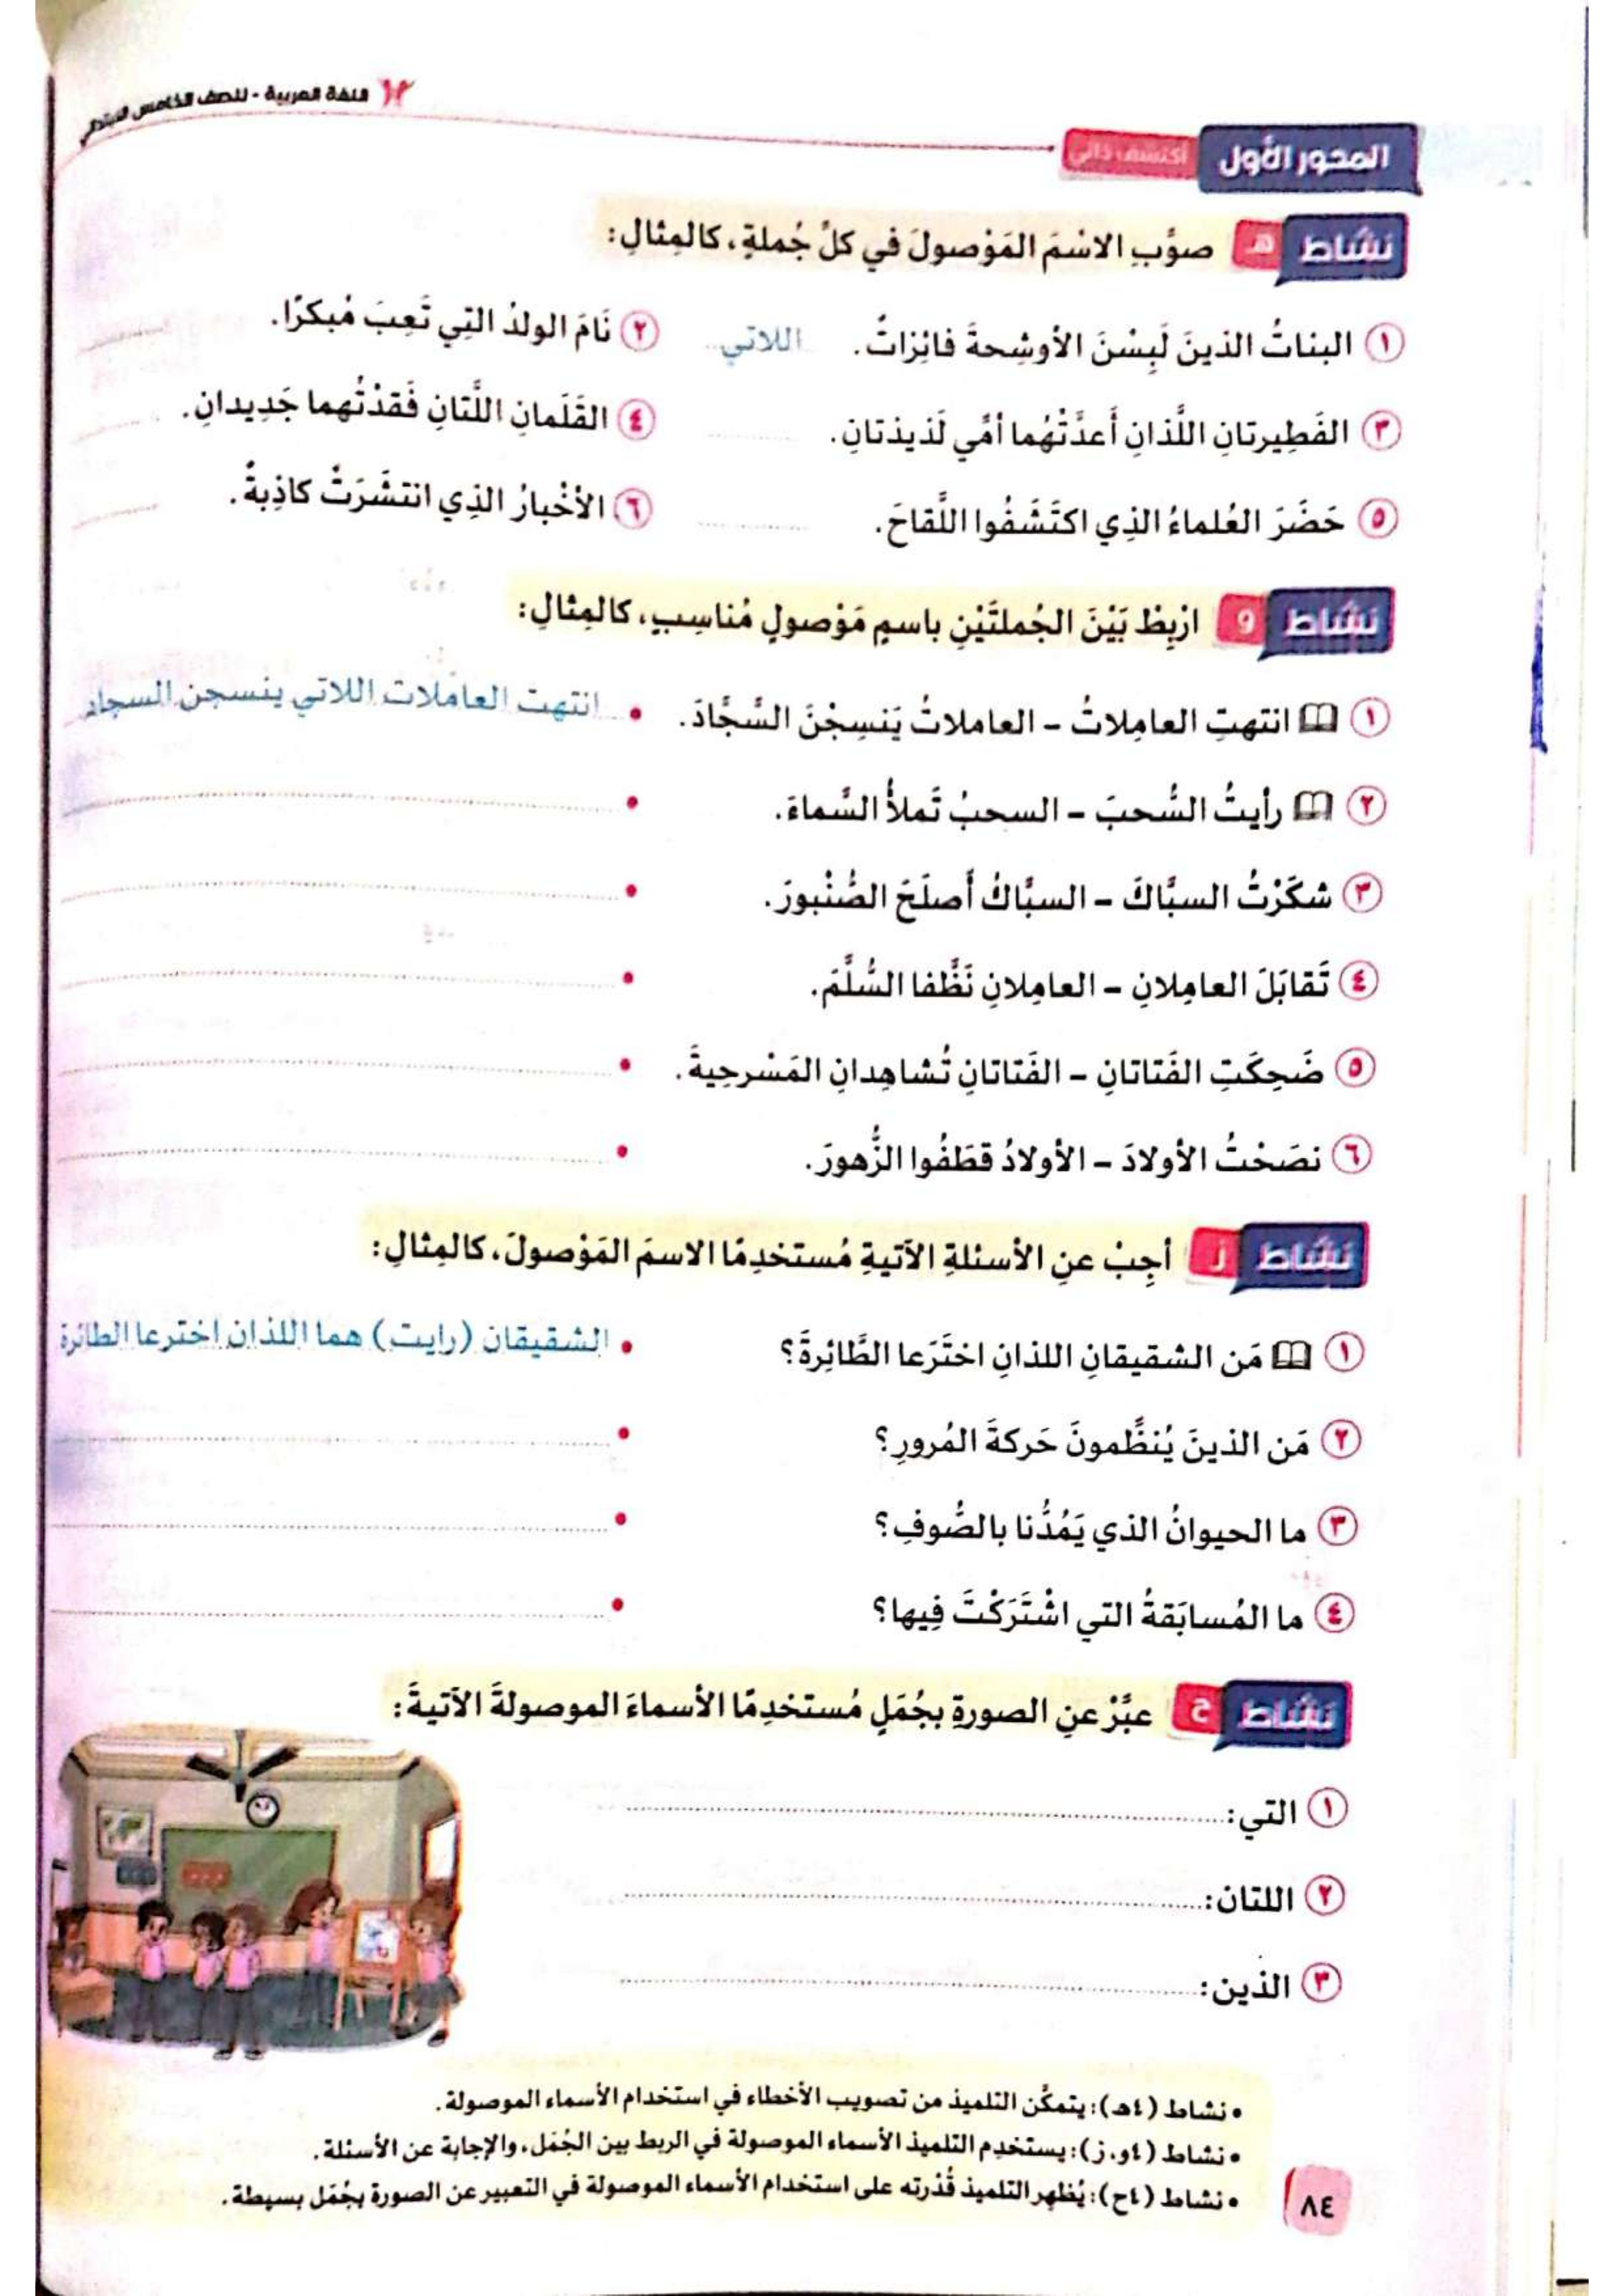 ١٢ اللغة العربية - للصف الخامس الابتدائي
المحور الأول أكتشف ذاتي
نشاط هـ صوِّبِ الاسْمَ المَوْصولَ في كلِّ جُملةٍ، كالمِثالِ:
١ البناتُ الذينَ لَبِسْنَ الأوشِحةَ فائِزاتٌ. اللاتي
٢ نَامَ الولدُ التِي تَعِبَ مُبكرًا.
٣ الفَطِيرتانِ اللَّذانِ أَعدَّتْهُما أمِّي لَذيذتانِ.
٤ القَلَمانِ اللَّتانِ فَقدْتُهما جَدِيدانِ.
٥ حَضَرَ العُلماءُ الذِي اكتَشَفُوا اللَّقاحَ.
٦ الأخْبارُ الذِي انتشَرَتْ كاذِبةٌ.
نشاط و ارْبِطْ بَيْنَ الجُملتَيْنِ باسمٍ مَوْصولٍ مُناسِبٍ، كالمِثالِ:
١ انتهتِ العامِلاتُ – العاملاتُ يَنسِجْنَ السَّجَّادَ. • انتهت العاملات اللاتي ينسجن السجاد
٢ رأيتُ السُّحبَ – السحبُ تَملأُ السَّماءَ. •
٣ شكَرْتُ السبَّاكَ – السبَّاكُ أَصلَحَ الصُّنْبورَ. •
٤ تَقابَلَ العامِلانِ – العامِلانِ نَظَّفا السُّلَّمَ. •
٥ ضَحِكَتِ الفَتاتانِ – الفَتاتانِ تُشاهِدانِ المَسْرحِيةَ. •
٦ نصَحْتُ الأولادَ – الأولادُ قطَفُوا الزُّهورَ. •
نشاط ز أجِبْ عنِ الأسئلةِ الآتيةِ مُستخدِمًا الاسمَ المَوْصولَ، كالمِثالِ:
١ مَن الشقيقانِ اللذانِ اختَرَعا الطَّائِرةَ؟ • الشقيقان (رايت) هما اللذان اخترعا الطائرة
٢ مَن الذينَ يُنظِّمونَ حَركةَ المُرورِ؟ •
٣ ما الحيوانُ الذي يَمُدُّنا بالصُّوفِ؟ •
٤ ما المُسابَقةُ التي اشْتَرَكْتَ فِيها؟ •
نشاط ح عبِّرْ عنِ الصورةِ بجُمَلٍ مُستخدِمًا الأسماءَ الموصولةَ الآتيةَ:
١ التي:
٢ اللتان:
٣ الذين:
• نشاط (٤هـ): يتمكَّن التلميذ من تصويب الأخطاء في استخدام الأسماء الموصولة.
• نشاط (٤و، ز): يستخدِم التلميذ الأسماء الموصولة في الربط بين الجُمَل، والإجابة عن الأسئلة.
• نشاط (٤ح): يُظهِر التلميذ قُدْرته على استخدام الأسماء الموصولة في التعبير عن الصورة بجُمَل بسيطة.
٨٤